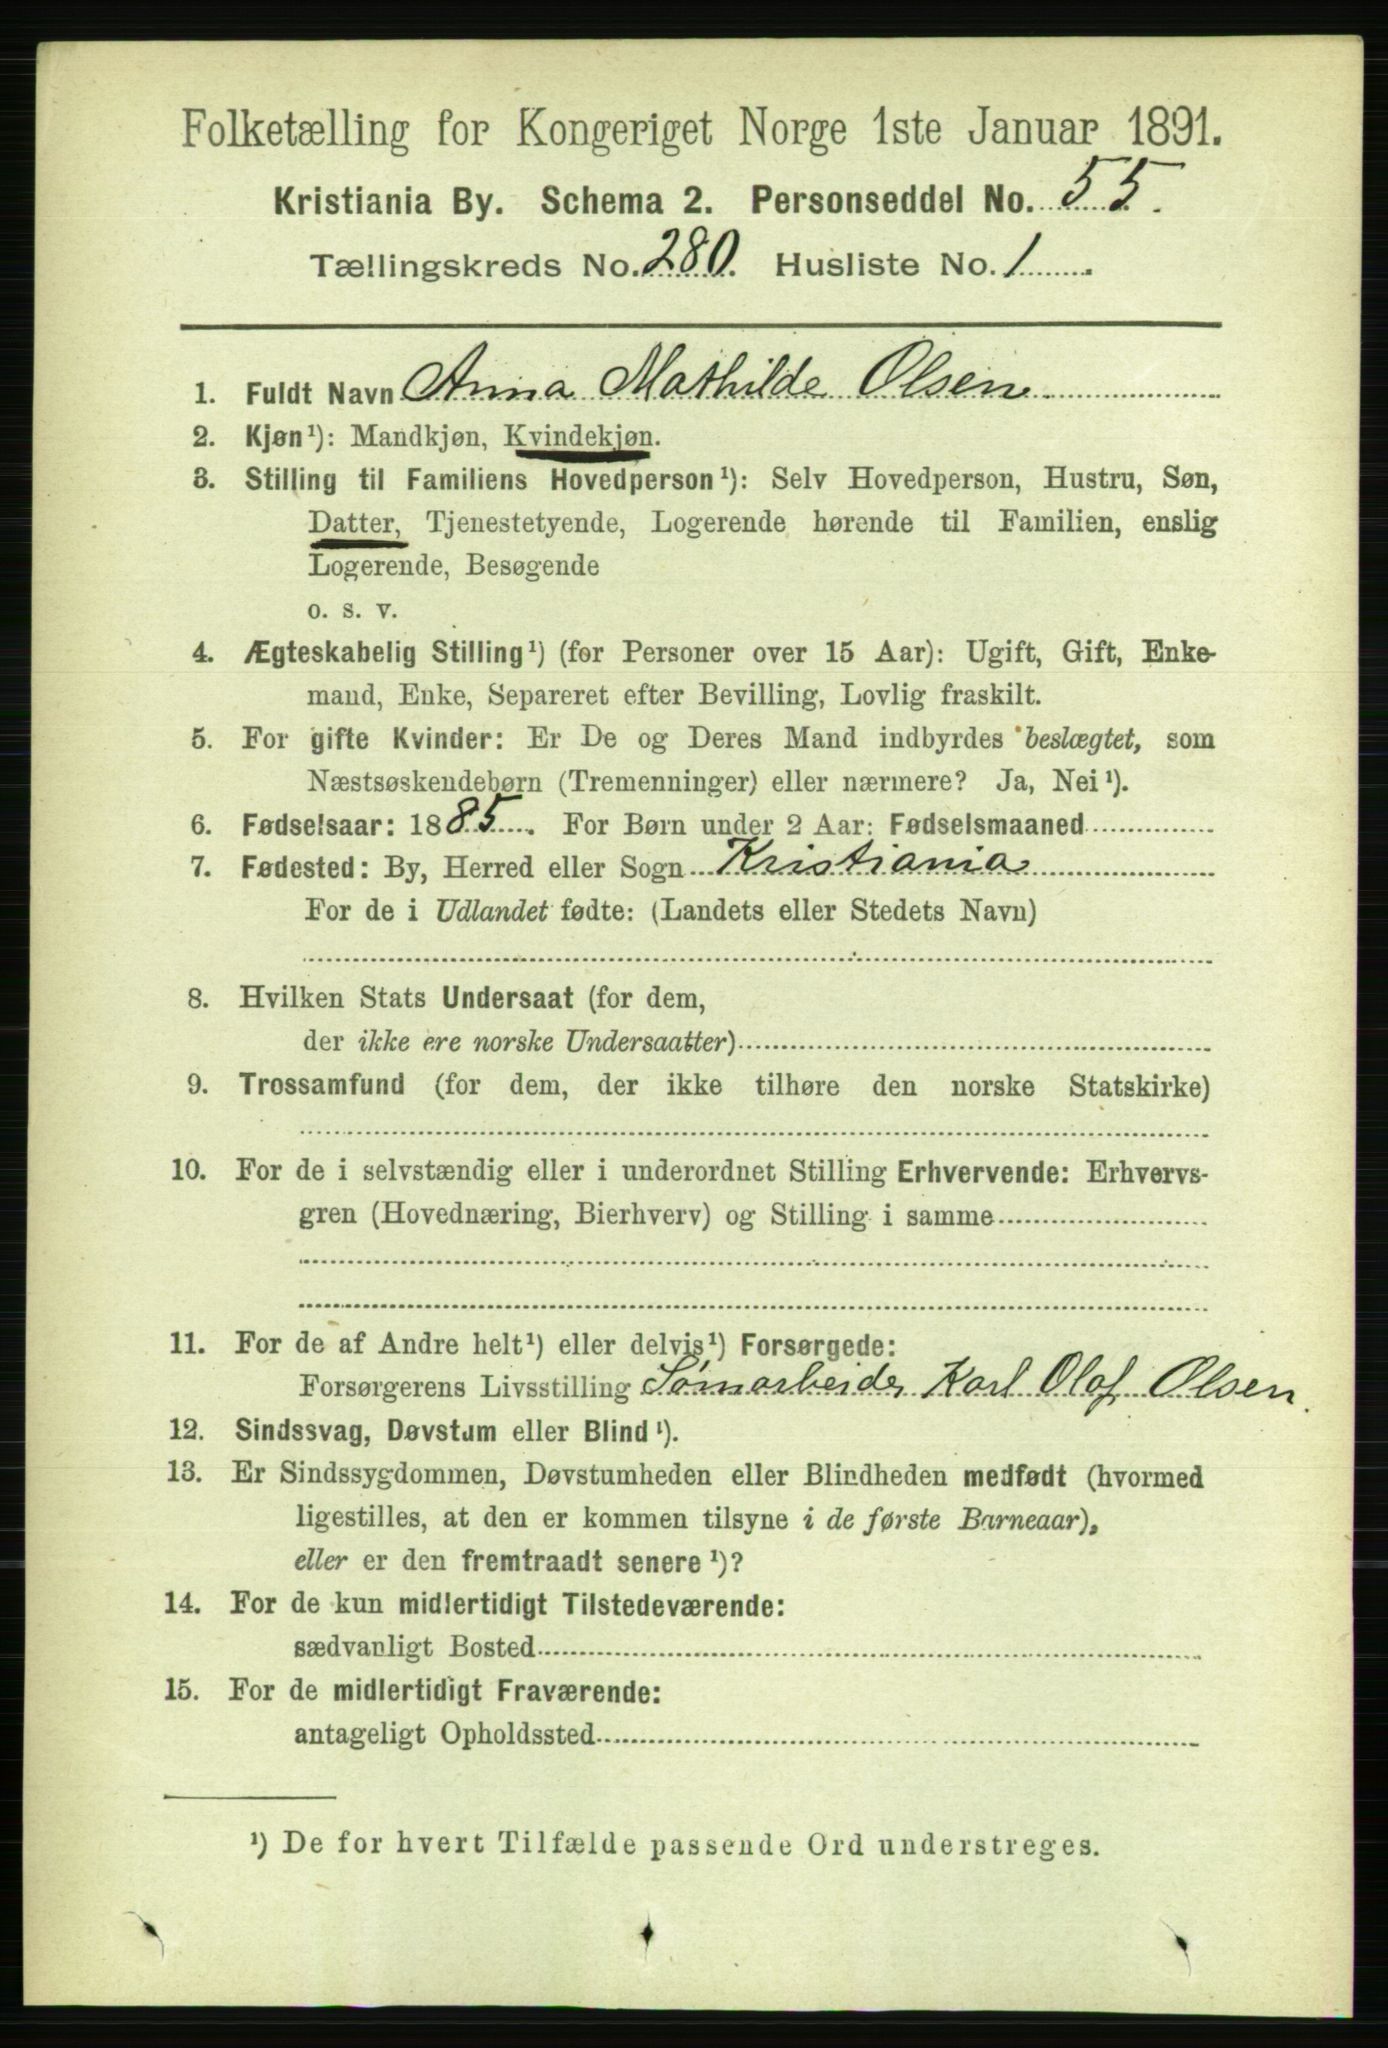 Folketælling for Kongeriget Norge 1ste Januar 1891.
Kristiania By. Schema 2. Personseddel No. 55.
Tællingskreds No. 280. Husliste No. 1.
1. Fuldt Navn Anna Mathilde Olsen
2. Kjøn¹): Mandkjøn, Kvindekjøn.
3. Stilling til Familiens Hovedperson¹): Selv Hovedperson, Hustru, Søn,
Datter, Tjenestetyende, Logerende hørende til Familien, enslig
Logerende, Besøgende
o. s. v.
4. Ægteskabelig Stilling¹) (for Personer over 15 Aar): Ugift, Gift, Enke-
mand, Enke, Separeret efter Bevilling, Lovlig fraskilt.
5. For gifte Kvinder: Er De og Deres Mand indbyrdes beslægtet, som
Næstsøskendebørn (Tremenninger) eller nærmere? Ja, Nei¹).
6. Fødselsaar: 1885. For Børn under 2 Aar: Fødselsmaaned
7. Fødested: By, Herred eller Sogn Kristiania
For de i Udlandet fødte: (Landets eller Stedets Navn)
8. Hvilken Stats Undersaat (for dem,
der ikke ere norske Undersaatter)
9. Trossamfund (for dem, der ikke tilhøre den norske Statskirke)
10. For de i selvstændig eller i underordnet Stilling Erhvervende: Erhvervs-
gren (Hovednæring, Bierhverv) og Stilling i samme
11. For de af Andre helt¹) eller delvis¹) Forsørgede:
Forsørgerens Livsstilling Karl Olof Olsen.
12. Sindssvag, Døvstum eller Blind¹).
13. Er Sindssygdommen, Døvstumheden eller Blindheden medfødt (hvormed
ligestilles, at den er kommen tilsyne i de første Barneaar),
eller er den fremtraadt senere¹)?
14. For de kun midlertidigt Tilstedeværende:
sædvanligt Bosted
15. For de midlertidigt Fraværende:
antageligt Opholdssted
¹) De for hvert Tilfælde passende Ord understreges.